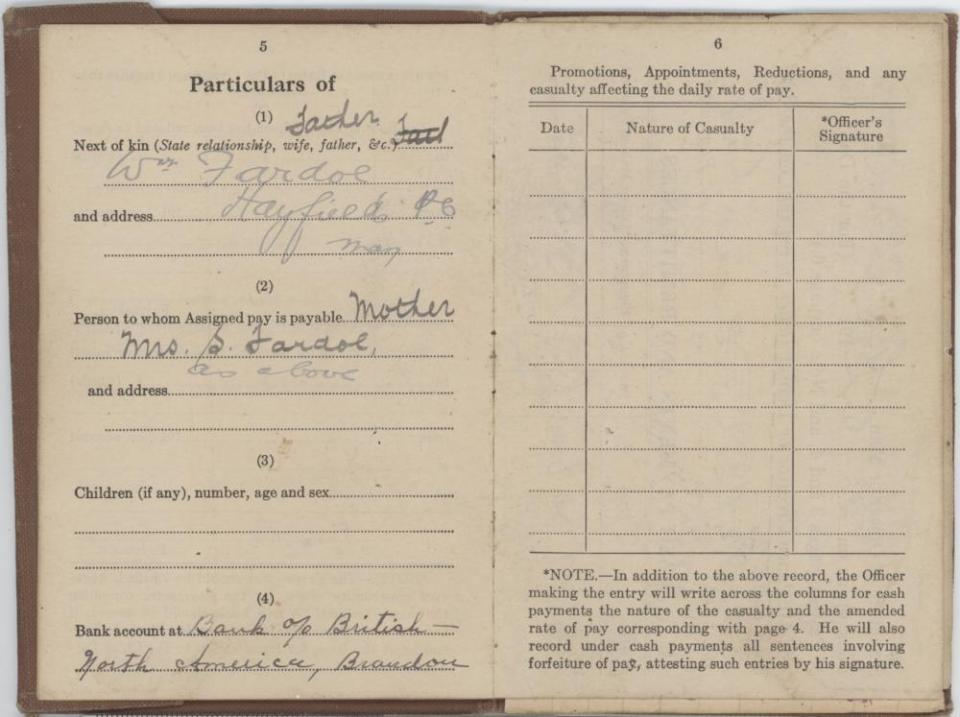 5
Particulars of
(1)
Father
Next of kin (State relationship, wife, father, &c.)
Wm Fardoe
and address Hayfield PO
Man
(2)
Person to whom Assigned pay is payable Mother
Mrs. S. Fardoe,
as above
and address
(3)
Children (if any), number, age and sex
(4)
Bank account at Bank of British
North America, Brandon
6
Promotions, Appointments, Reductions, and any
casualty affecting the daily rate of pay.
Date Nature of Casualty *Officer's
Signature
*NOTE.—In addition to the above record, the Officer
making the entry will write across the columns for cash
payments the nature of the casualty and the amended
rate of pay corresponding with page 4. He will also
record under cash payments all sentences involving
forfeiture of pay, attesting such entries by his signature.